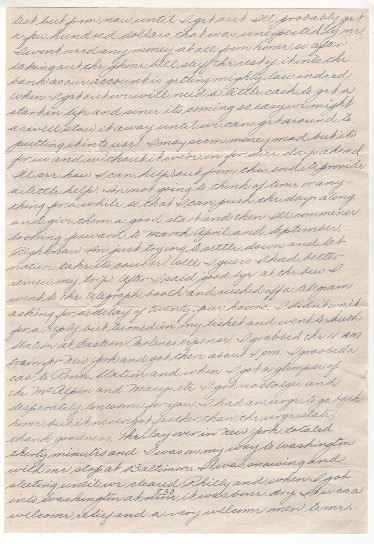 list but from now until I get out I'll probably get
a few hundred dollars that was unexpected by me.
I wont need any money at all from home so after
taking out the phone bill stuff the rest of it into the
bank as our account is getting mighty low indeed.
When I get out we will need a little cash to get a
start in life and since its coming so easy we might
as well stow it away until we can get around to
putting it into use. I may seem money mad but its
for us and without it we're in for dire days ahead.
I'll see how I can help out from this end to provide
a little help. Am not going to think of time or any-
thing for a while so that I can push the days along
and give them a good start and then I'll commence
looking forward to March April and September.
Right now I'm just trying to settle down and let
nature take its course. Well I guess I had better
review my trip. After I said good bye at the bus I
went to the telegraph booth and rushed off a telegram
asking for a delay of twenty four hours. I didn't wait
for a reply but turned in my ticket and went to South
Station at Eastern Airlines expense. I grabbed the 11 am
train for New York and got there about 4 pm. I grabbed a
cab to Penn Station and when I got a glimpse of
the McAlpin and Macys etc I got nostalgic and
desperately lonesome for you. I had an urge to go back
home but it never got farther than the urge state
thank goodness. The lay over in New York totaled
thirty minutes and I was on my way to Washington
with one stop at Baltimore. It was snowing and
sleeting until we cleared Philly and when I got
into Washington at nine 8:30 it was bone dry. It was a
welcome relief and a very welcome omen to me.